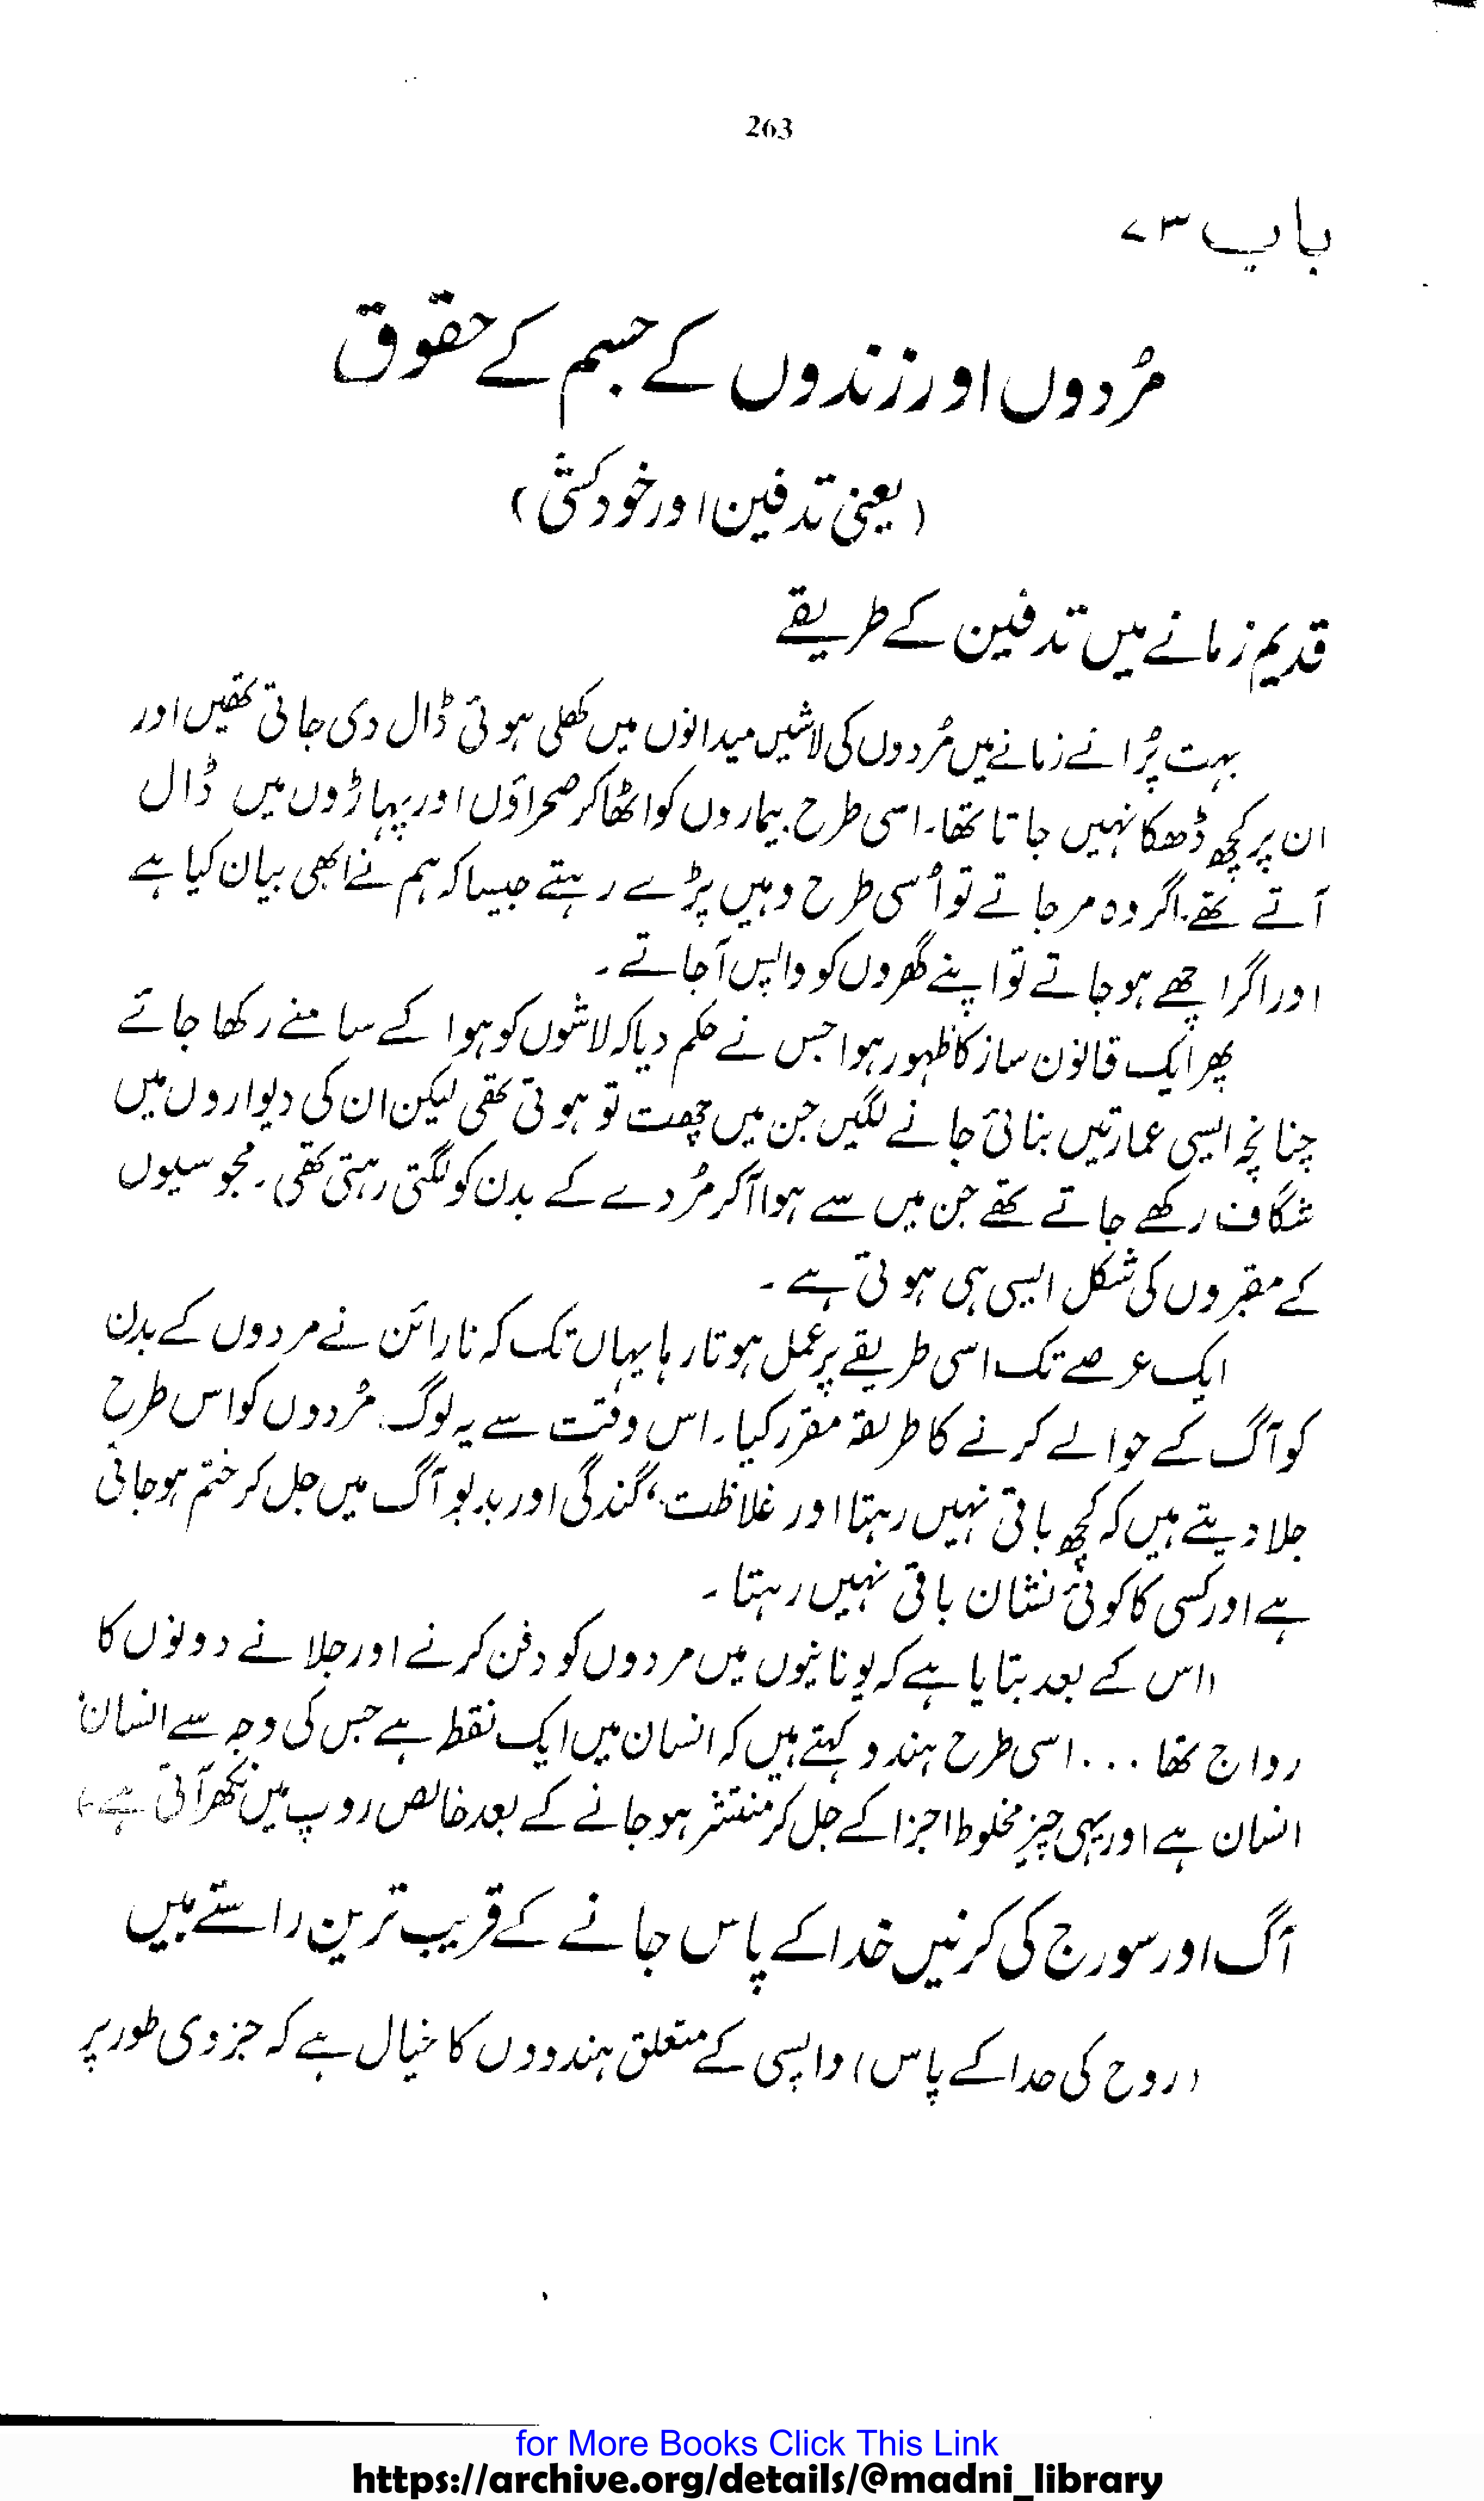 263
باب ۷۳
مُردوں اور زندوں کے جسم کے حقوق
(یعنی تدفین اور خودکشی)
قدیم زمانے میں تدفین کے طریقے
بہت پُرانے زمانے میں مُردوں کی لاشیں میدانوں میں کھلی ہوئی ڈال دی جاتی تھیں اور
ان پر کچھ ڈھکا نہیں جاتا تھا۔ اسی طرح بیماروں کو اٹھا کر صحراؤں اور پہاڑوں میں ڈال
آتے تھے۔ اگر وہ مر جاتے تو اُسی طرح وہیں پڑے رہتے جیسا کہ ہم نے ابھی بیان کیا ہے
اور اگر اچھے ہو جاتے تو اپنے گھروں کو واپس آجاتے۔
پھر ایک قانون ساز کا ظہور ہوا جس نے حکم دیا کہ لاشوں کو ہوا کے سامنے رکھا جائے
چنانچہ ایسی عمارتیں بنائی جانے لگیں جن میں چھت تو ہوتی تھی لیکن ان کی دیواروں میں
شگاف رکھے جاتے تھے جن میں سے ہوا آکر مُردے کے بدن کو لگتی رہتی تھی۔ مجوسیوں
کے مقبروں کی شکل ایسی ہی ہوتی ہے۔
ایک عرصے تک اسی طریقے پر عمل ہوتا رہا یہاں تک کہ نارائن نے مردوں کے بدن
کو آگ کے حوالے کرنے کا طریقہ مقرر کیا۔ اس وقت سے یہ لوگ مُردوں کو اس طرح
جلا دیتے ہیں کہ کچھ باقی نہیں رہتا اور غلاظت، گندگی اور بدبو آگ میں جل کر ختم ہو جاتی
ہے اور کسی کا کوئی نشان باقی نہیں رہتا۔
(اس کے بعد بتایا ہے کہ یونانیوں میں مردوں کو دفن کرنے اور جلانے دونوں کا
رواج تھا ... اسی طرح ہندو کہتے ہیں کہ انسان میں ایک نقطہ ہے جس کی وجہ سے انسان
انسان ہے اور یہی چیز مخلوط اجزا کے جل کر منتشر ہو جانے کے بعد خالص روپ میں نکھر آتی ہے)
آگ اور سورج کی کرنیں خدا کے پاس جانے کے قریب ترین راستے ہیں
(روح کی خدا کے پاس) واپسی کے متعلق ہندووں کا خیال ہے کہ جزوی طور پر
for More Books Click This Link
https://archive.org/details/@madni_library